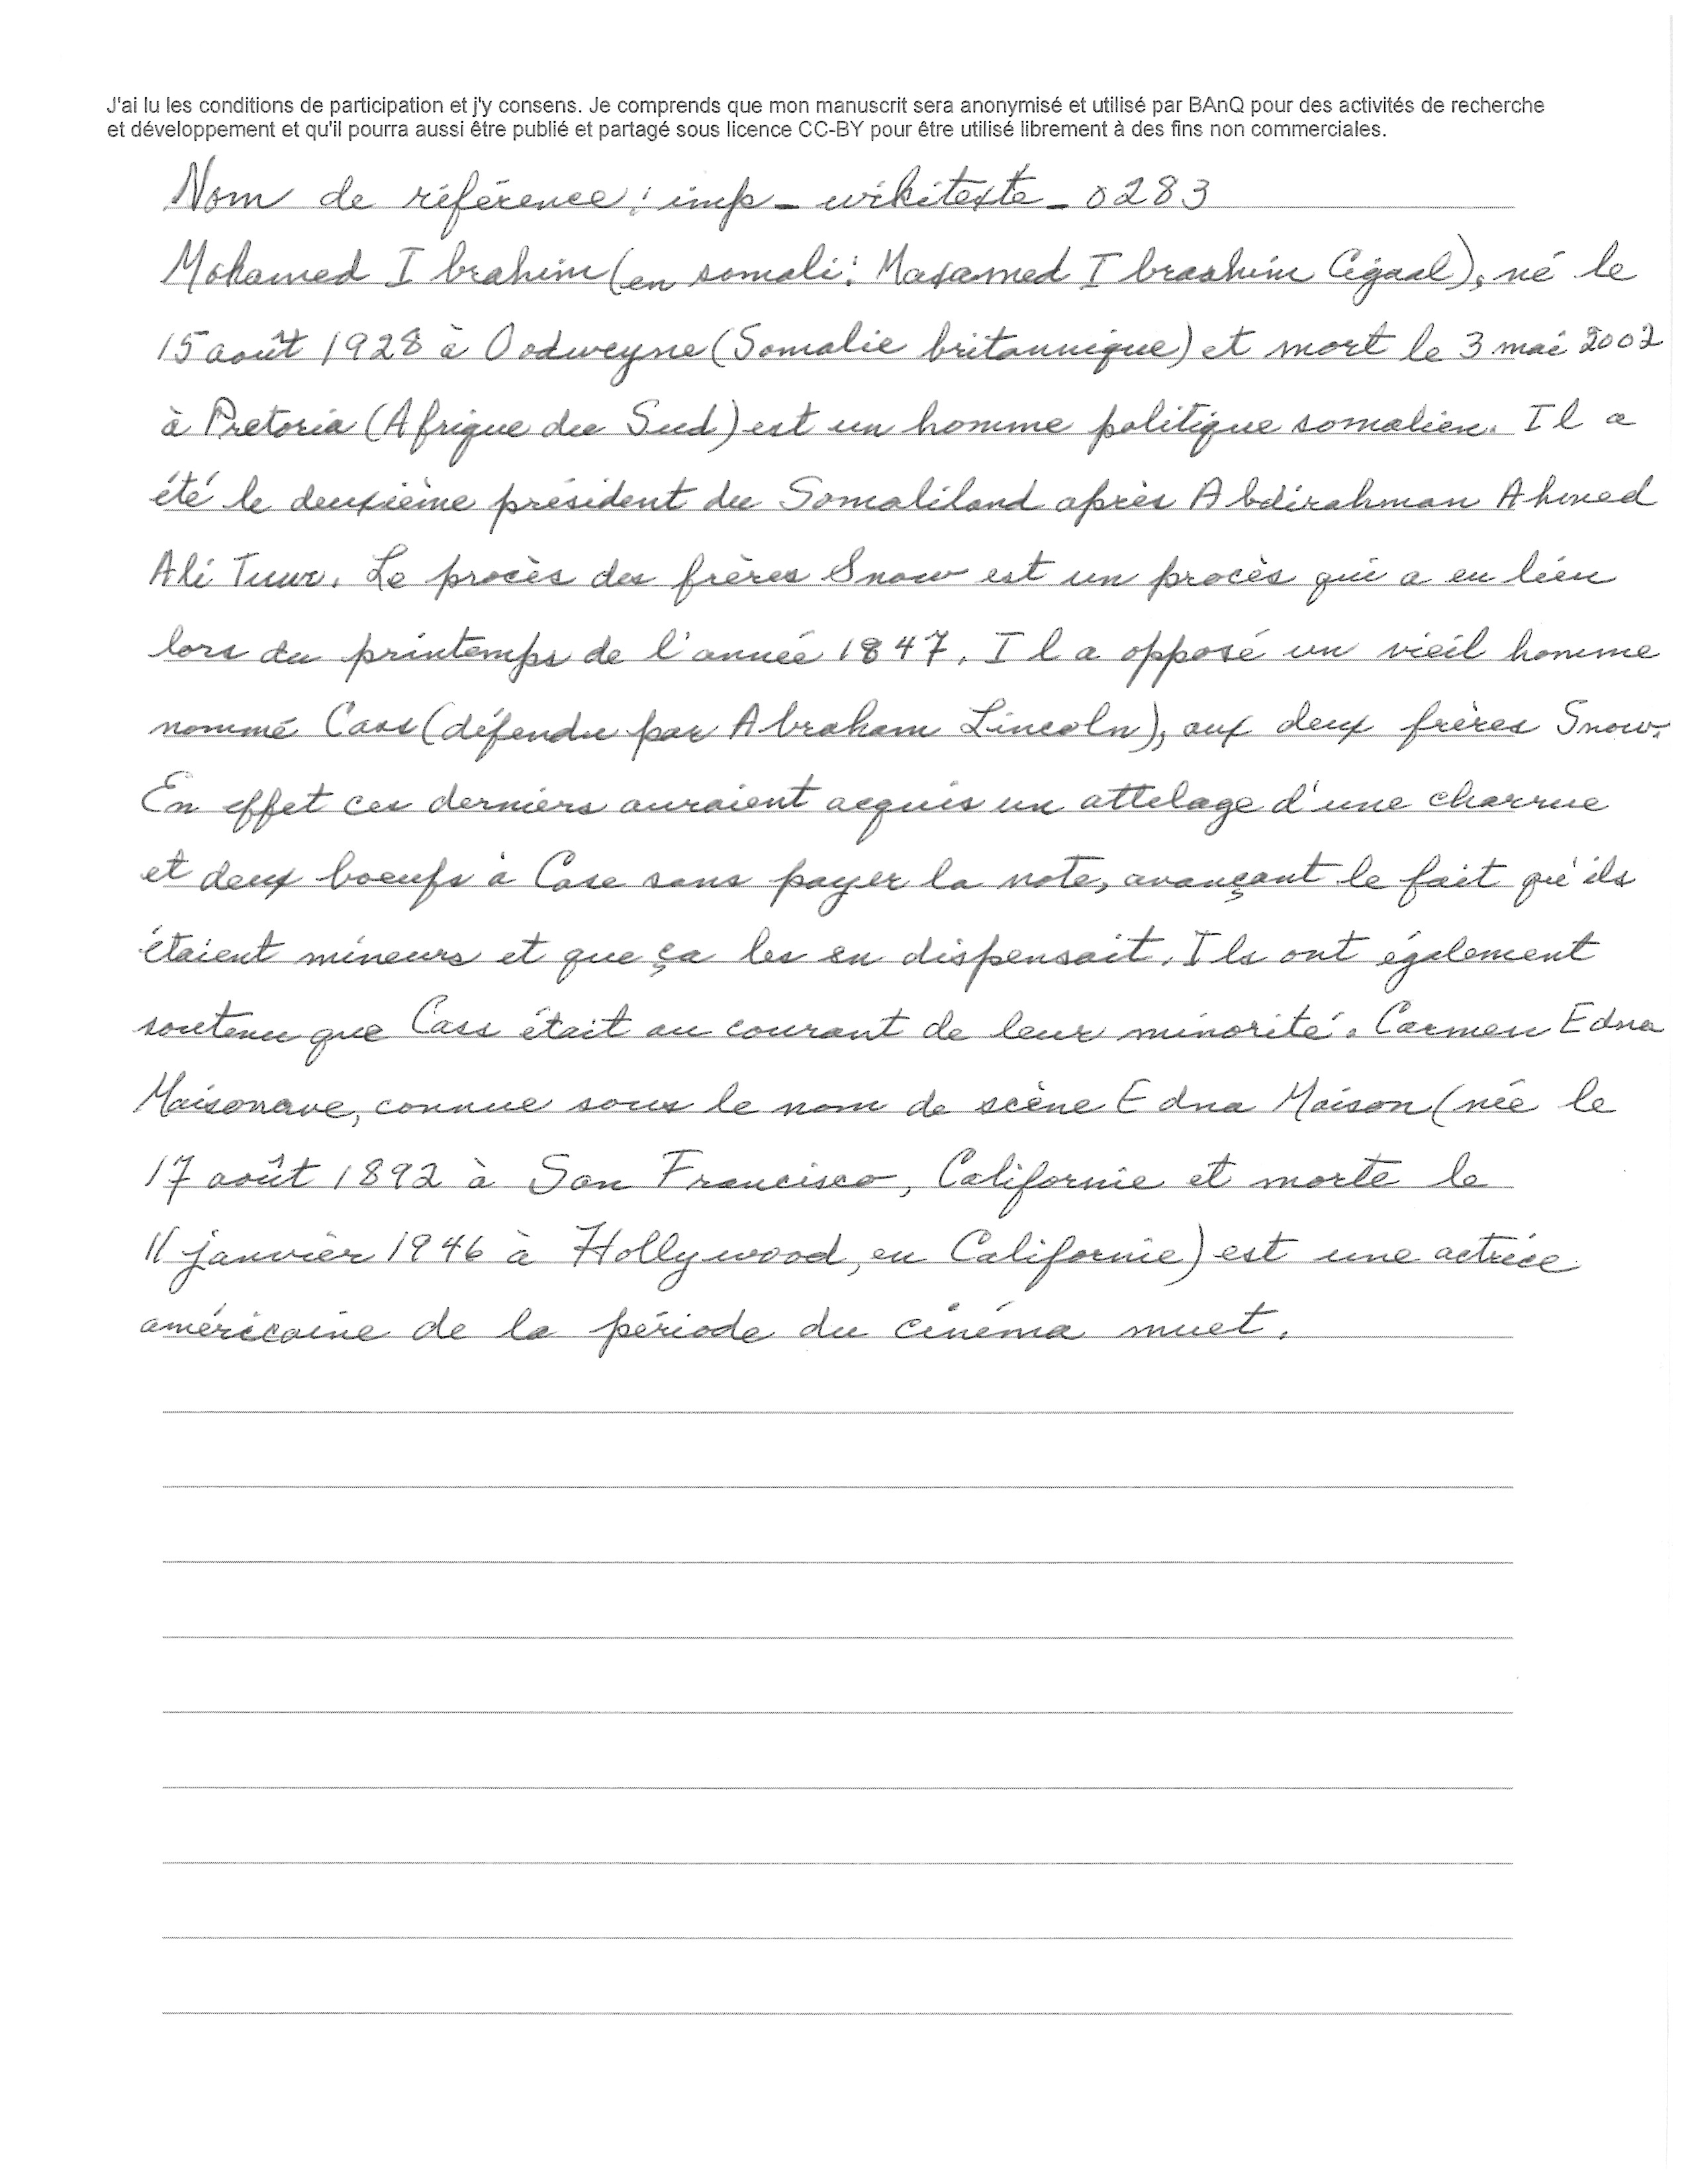 J'ai lu les conditions de participation et j'y consens. Je comprends que mon manuscrit sera anonymisé et utilisé par BAnQ pour des activités de recherche
et développement et qu'il pourra aussi être publié et partagé sous licence CC-BY pour être utilisé librement à des fins non commerciales.
Nom de référence : imp_wikitexte_0283
Mohamed Ibrahim (en somali : Maxamed Ibraahim Cigaal), né le
15 août 1928 à Oodweyne (Somalie britannique) et mort le 3 mai 2002
à Pretoria (Afrique du Sud) est un homme politique somalien. Il a
été le deuxième président du Somaliland après Abdirahman Ahmed
Ali Tuur. Le procès des frères Snow est un procès qui a eu lieu
lors du printemps de l'année 1847. Il a opposé un vieil homme
nommé Cass (défendu par Abraham Lincoln), aux deux frères Snow.
En effet ces derniers auraient acquis un attelage d'une charrue
et deux boeufs à Case sans payer la note, avançant le fait qu'ils
étaient mineurs et que ça les en dispensait. Ils ont également
soutenu que Cass était au courant de leur minorité. Carmen Edna
Maisonave, connue sous le nom de scène Edna Maison (née le
17 août 1892 à San Francisco, Californie et morte le
11 janvier 1946 à Hollywood, en Californie) est une actrice
américaine de la période du cinéma muet.